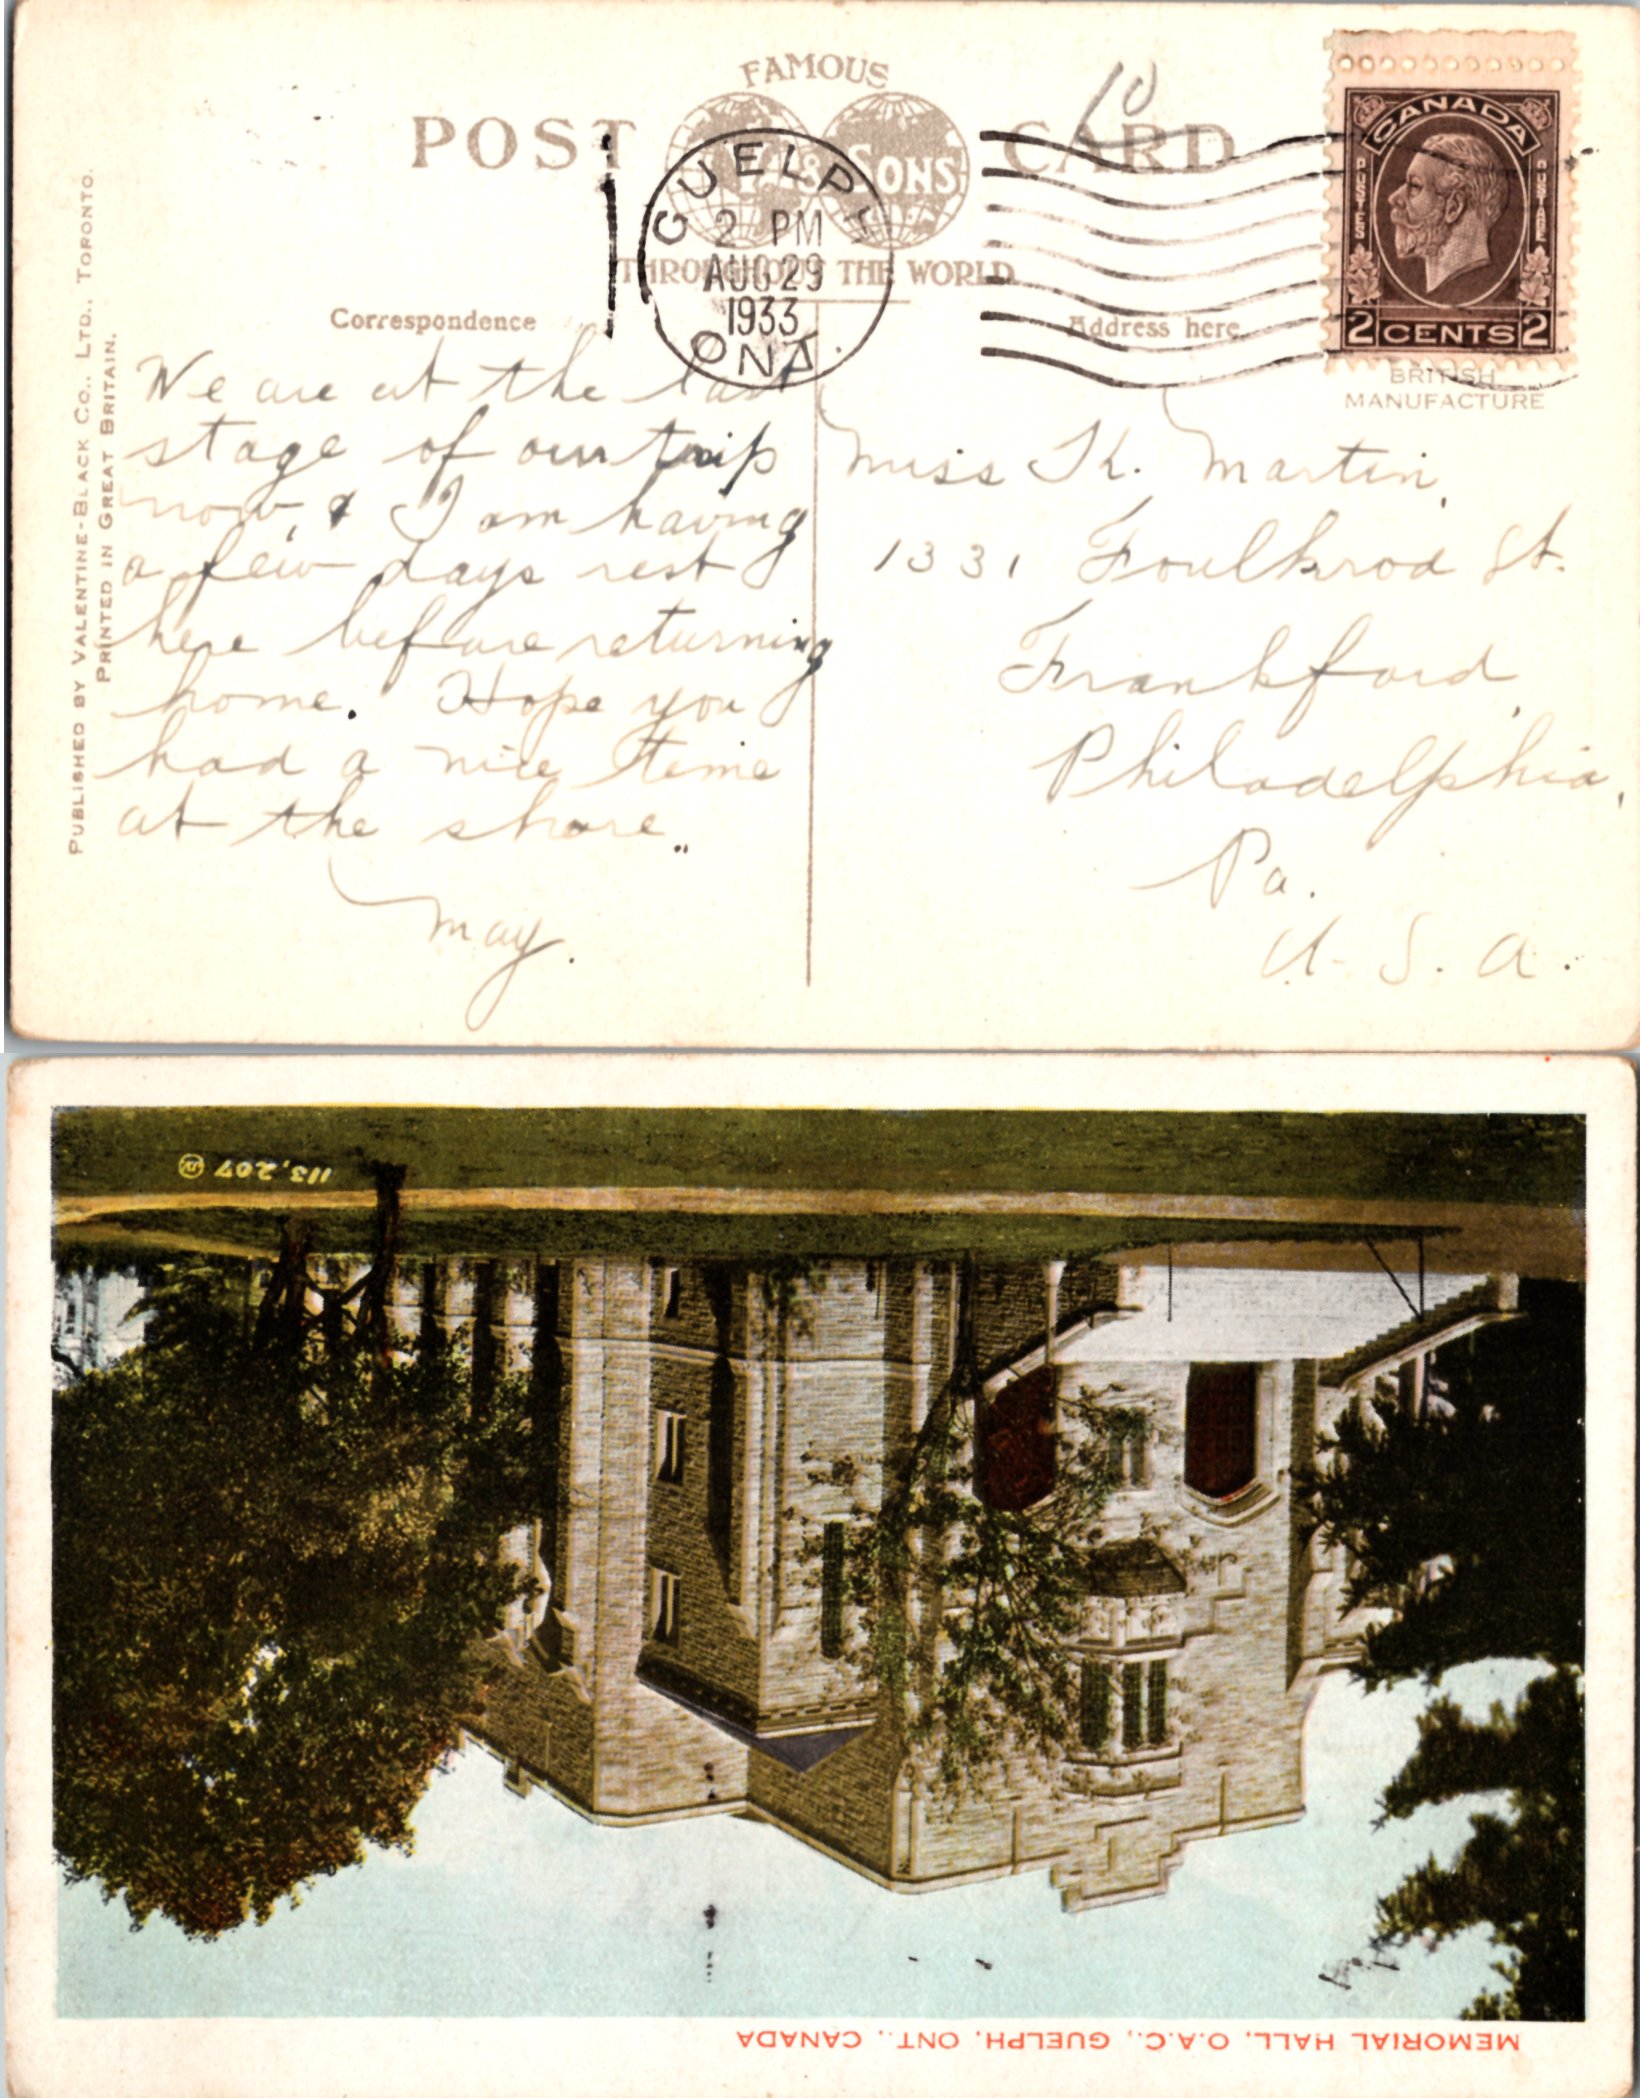 FAMOUS
POST CARD
V & SONS
THROUGHOUT THE WORLD
10
GUELPH
2 PM
AUG 29
1933
ONT.
CANADA
POSTES POSTAGE
2 CENTS 2
BRITISH
MANUFACTURE
Correspondence
Address here
PUBLISHED BY VALENTINE-BLACK CO., LTD., TORONTO.
PRINTED IN GREAT BRITAIN.
We are at the last
stage of our trip
now, & I am having
a few days rest
here before returning
home. Hope you
had a nice time
at the shore.
May.
Miss K. Martin,
1331 Foulkrod St.
Frankford,
Philadelphia,
Pa.
U.S.A.
113,207 JV
MEMORIAL HALL, O.A.C., GUELPH, ONT., CANADA